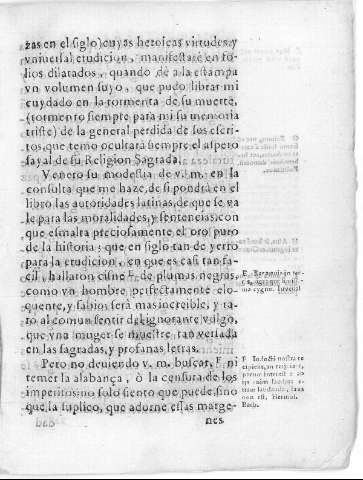 zas en el siglo) cuyas heroicas virtudes, y
vniversal erudicion, manifestaré en fo-
lios dilatados, quando dé a la estampa
vn volumen suyo, que pudo librar mi
cuydado en la tormenta de su muerte,
(tormento siempre para mi su memoria
triste) de la general perdida de los escri-
tos, que temo ocultará siempre el aspero
sayal de su Religion Sagrada.
Venero su modestia de v. m. en la
consulta que me haze, de si pondrá en el
libro las autoridades latinas, de que se va
le para las moralidades, y sentencias, con
que esmalta preciosamente el oro puro
de la historia; que en siglo tan de yerro
para la erudicion, en que es casi tan fa-
cil, hallar vn cisne E de plumas negras,
como vn hombre perfectamente elo-
quente, y sabio; será mas increible, y ra-
ro al comun sentir del ignorante vulgo,
que vna muger se muestre tan versada
en las sagradas, y profanas letras.
Pero no deuiendo v. m. buscar, F ni
temer la alabança, ò la censura de los
imperitos; no solo siento que puede, sino
que la suplico, que adorne essas marge-
nes
E Rara avis in ter-
ris, nigroque simili-
ma cygno. Iuvenal
F Indocti nostra re